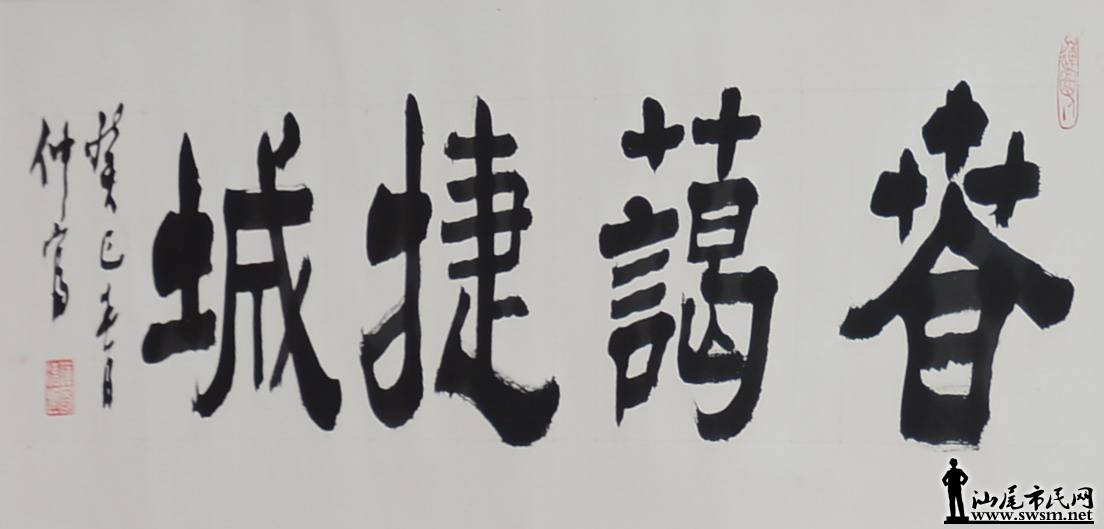 春藹捷城
癸巳春月
仲富
汕尾市民网
www.swsm.net